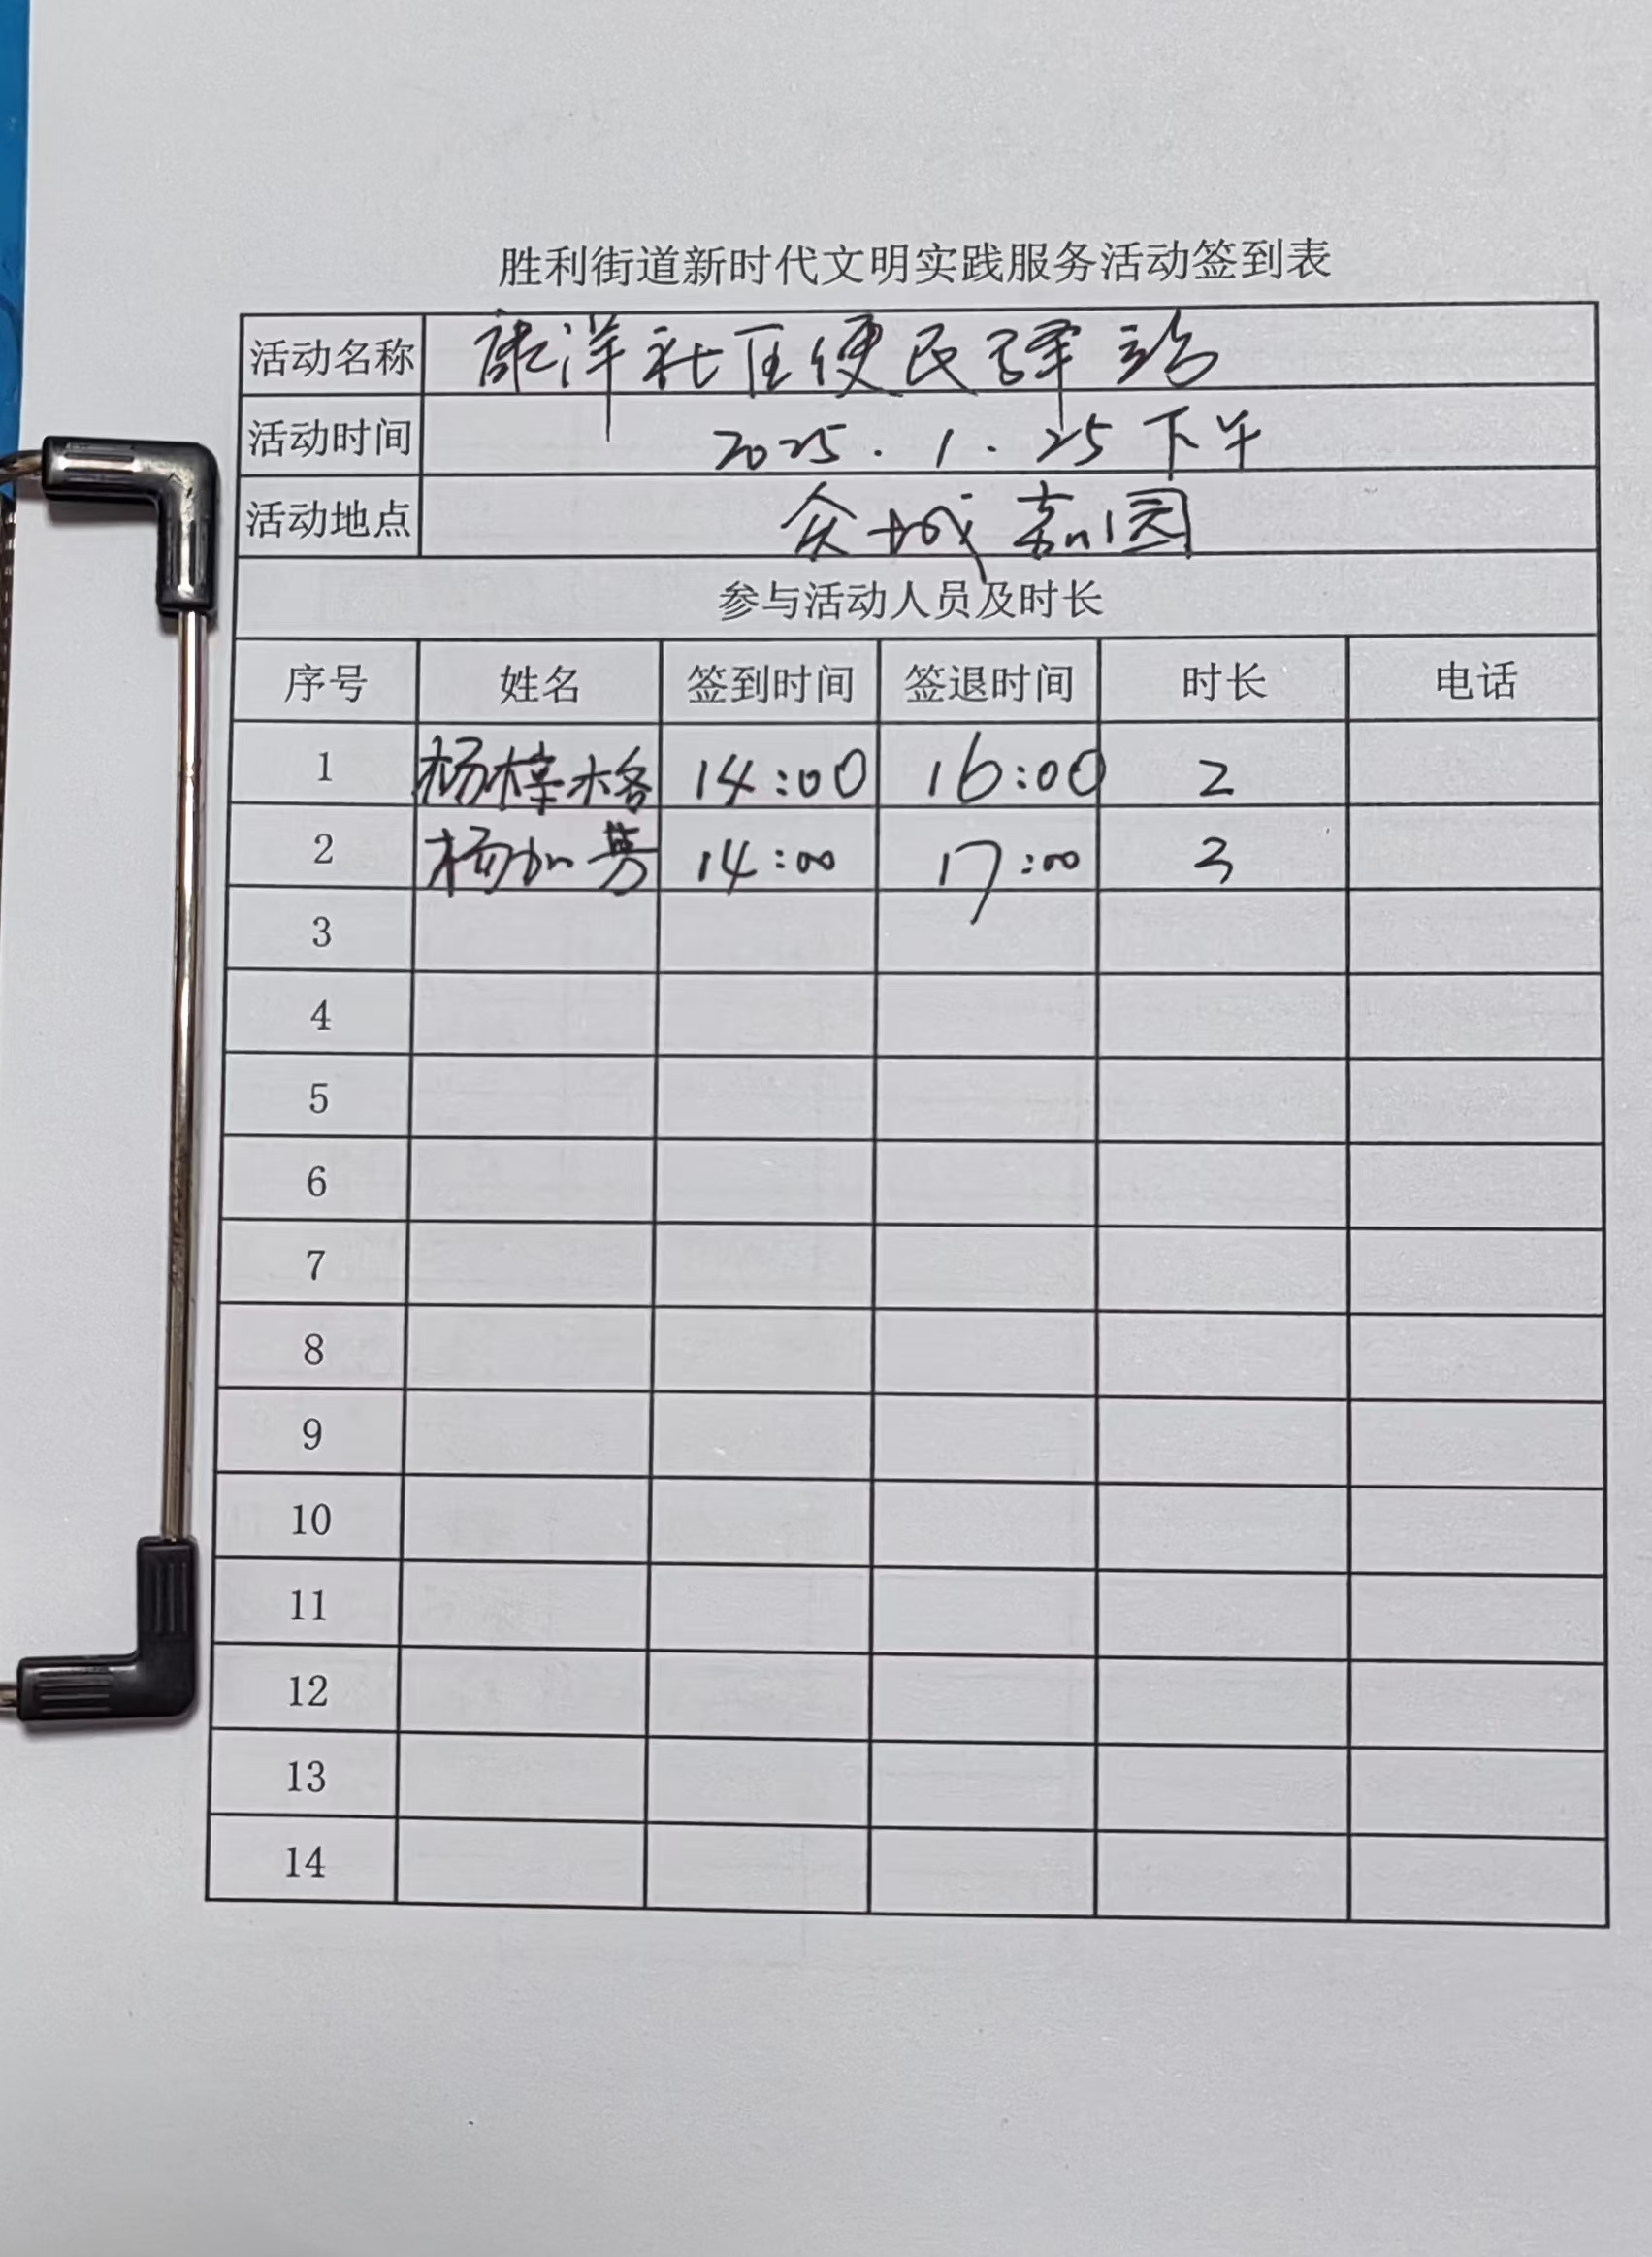 胜利街道新时代文明实践服务活动签到表
活动名称 康洋社区便民驿站
活动时间 2025.1.25下午
活动地点 众城嘉园
参与活动人员及时长
序号 姓名 签到时间 签退时间 时长 电话
1 杨梓格 14:00 16:00 2
2 杨加 14:00 17:00 3
3
4
5
6
7
8
9
10
11
12
13
14